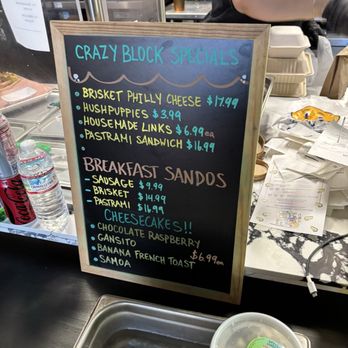 CRAZY BLOCK SPECIALS
BRISKET PHILLY CHEESE $17.99
HUSHPUPPIES $3.99
HOUSEMADE LINKS $6.99 ea
PASTRAMI SANDWICH $16.99
BREAKFAST SANDOS
- SAUSAGE $9.99
- BRISKET $14.99
- PASTRAMI $16.99
CHEESECAKES!!
CHOCOLATE RASPBERRY
GANSITO
BANANA FRENCH TOAST $6.99 ea
SAMOA